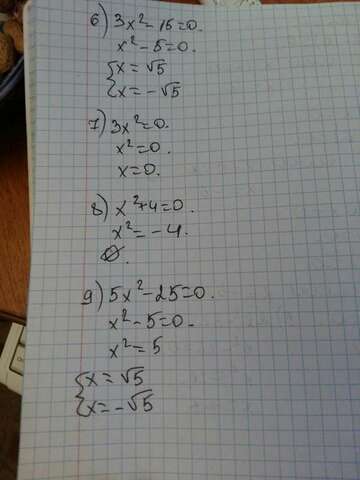 6) 3x² - 15 = 0.
x² - 5 = 0.
{ x = √5
{ x = -√5
7) 3x² = 0.
x² = 0.
x = 0.
8) x² + 4 = 0.
x² = -4.
∅.
9) 5x² - 25 = 0.
x² - 5 = 0.
x² = 5
{ x = √5
{ x = -√5